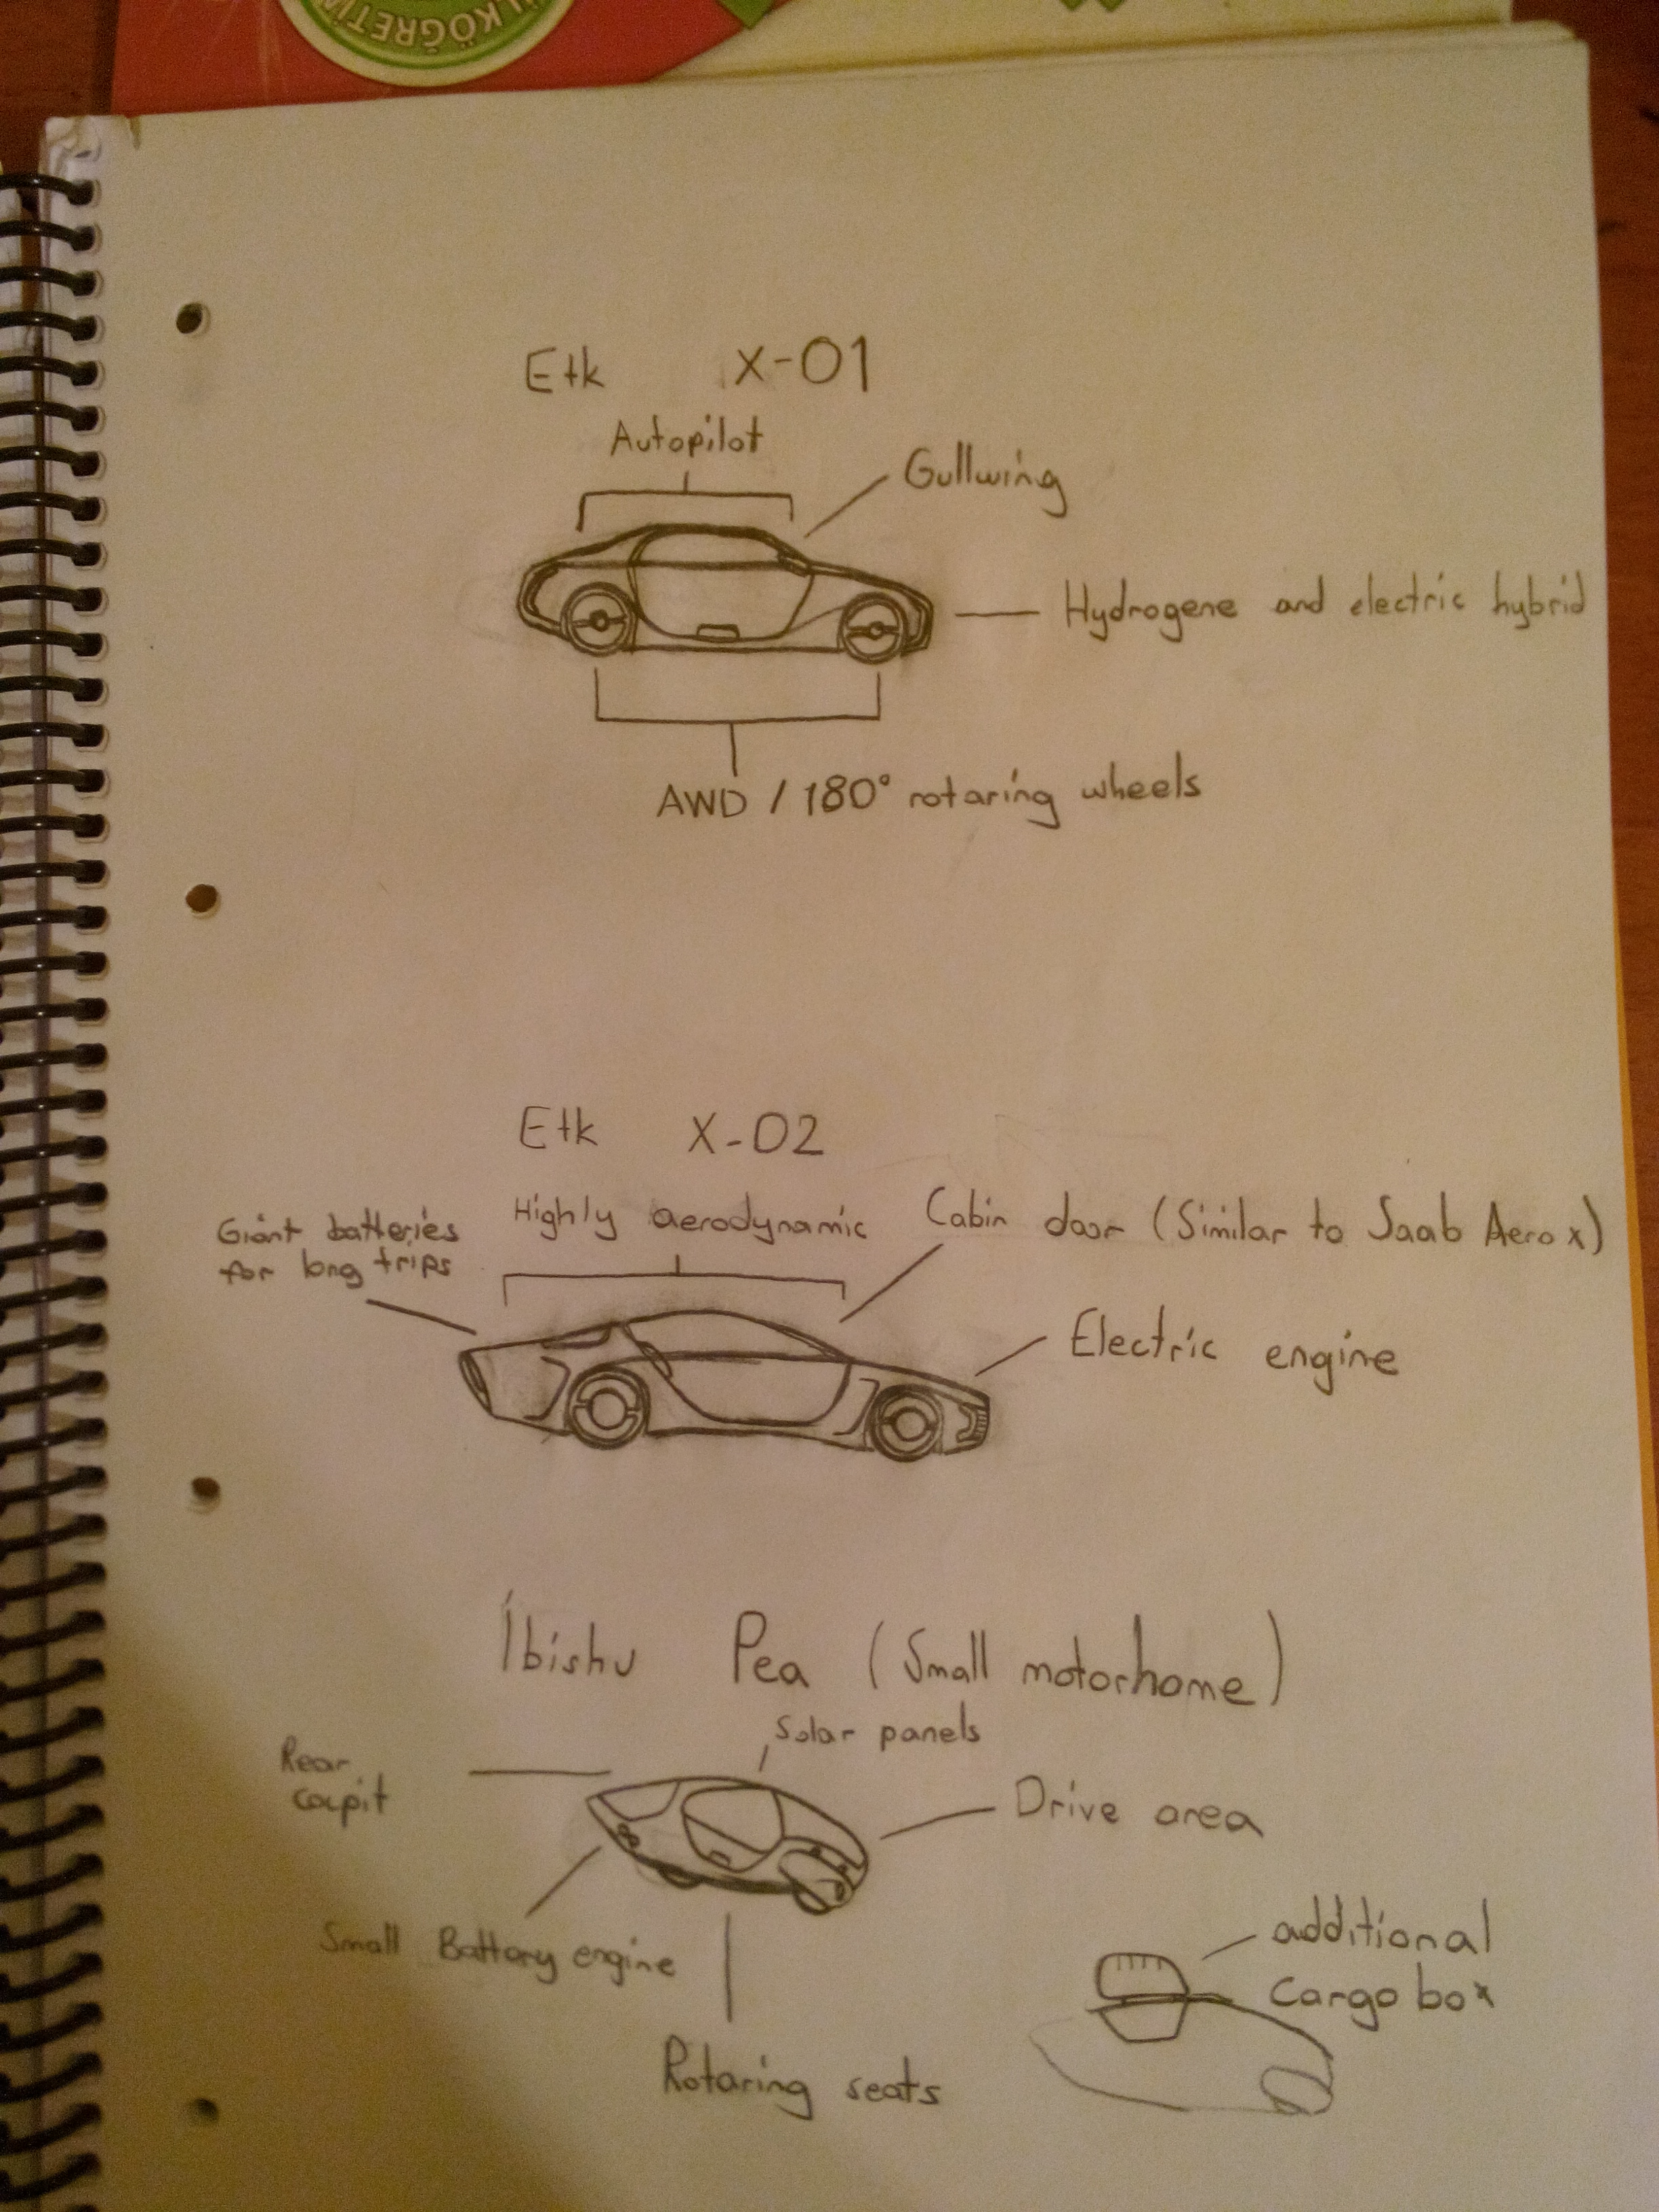 İLKÖĞRETİM
Etk X-01
Autopilot
Gullwing
Hydrogene and electric hybrid
AWD / 180° rotaring wheels
Etk X-02
Giant batteries
for long trips
Highly aerodynamic
Cabin door (Similar to Saab Aero x)
Electric engine
İbishu Pea (Small motorhome)
Solar panels
Rear
cocpit
Drive area
Small Battery engine
Rotaring seats
additional
cargo box